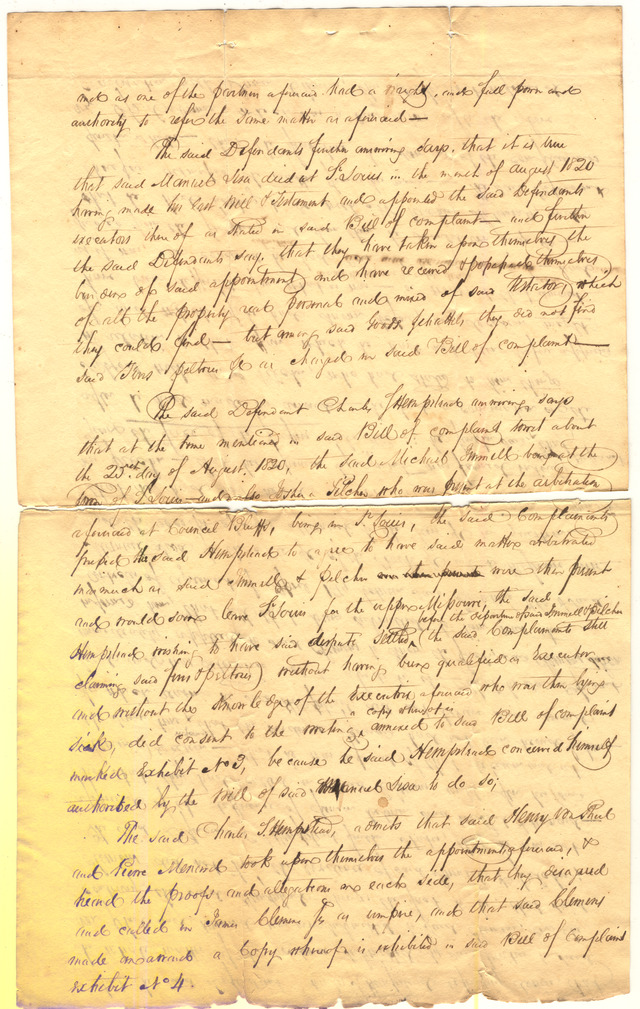 met as one of the partners aforesaid had a right, and full power and
authority to refer the same matter as aforesaid —
The said Defendants further answering says, that it is true
that said Manuel Lisa died at St Louis in the month of August 1820
having made his last Will & Testament and appointed the said Defendants
executors thereof as stated in said Bill of complaint — and further
the said Defendants say, that they have taken upon themselves the
burdens of said appointment and have received & possessed themselves
of all the property real personal and mixed of said Testator, which
they could find — but among said Goods & chattels they did not find
said Furs peltries &c as charged in said Bill of complaint —
The said Defendant Charles S Hempstead answering, says
that at the time mentioned in said Bill of complaint towit about
the 23rd day of August 1820, the said Michael Immell being at the
town of St Louis and also Joshua Pilcher who was present at the arbitration
aforesaid at Council Bluffs, being in St Louis, the said Complainants
pressed the said Hempstead to agree to have said matter arbitrated
inasmuch as said Immell & Pilcher were then present
and would soon leave St Louis for the upper Missouri, the said
before the departure of said Immell & Pilcher
Hempstead wishing to have said dispute settled (the said Complainants still
claiming said furs & peltries) without having been qualified as Executor
and without the knowledge of the Executrix aforesaid who was then lying
a copy whereof is
sick, did consent to the writing, annexed to said Bill of complaint
marked Exhibit No 3, because he said Hempstead conceived himself
authorised by the Will of said Manuel Lisa to do so;
The said Charles S. Hempstead, admits that said Henry Von Phul
and Pierre Menard took upon themselves the appointment aforesaid, &
heard the proofs and allegations on each side, that they disagreed
and called in James Clemens Jr as umpire, and that said Clemens
made an award a Copy whereof is exhibited in said Bill of Complaint
exhibit No 4.